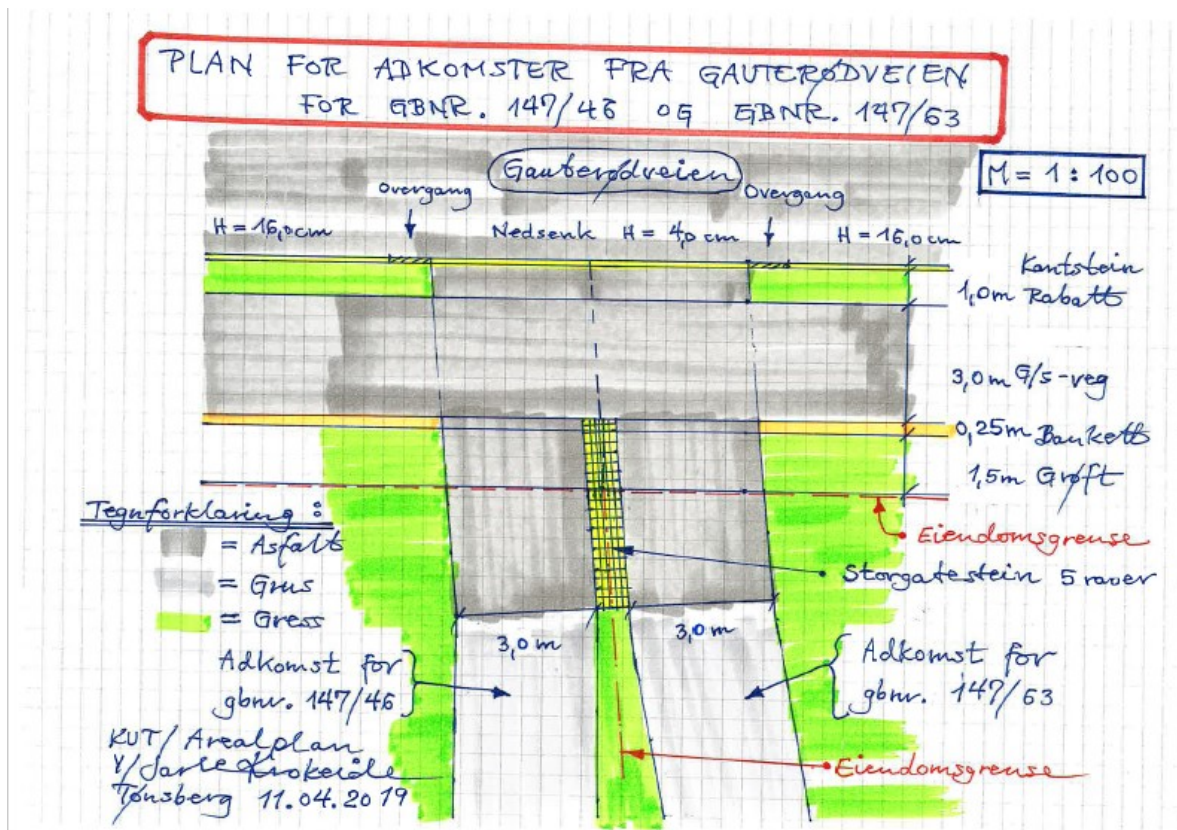 PLAN FOR ADKOMSTER FRA GAUTERØDVEIEN
FOR GBNR. 147/46 OG GBNR. 147/63
Gauterødveien
M = 1 : 100
Overgang
Overgang
H = 16,0cm
Nedsenk H = 4,0 cm
H = 16,0cm
Kantstein
1,0m Rabatt
3,0m G/S-veg
0,25m Bankett
1,5m Grøft
Eiendomsgrense
Storgatestein 5 rader
Tegnforklaring :
= Asfalt
= Grus
= Gress
3,0 m
3,0 m
Adkomst for
gbnr. 147/46
Adkomst for
gbnr. 147/63
Eiendomsgrense
KUT/ Arealplan
V/ Jarle Krokeide
Tønsberg 11.04.2019